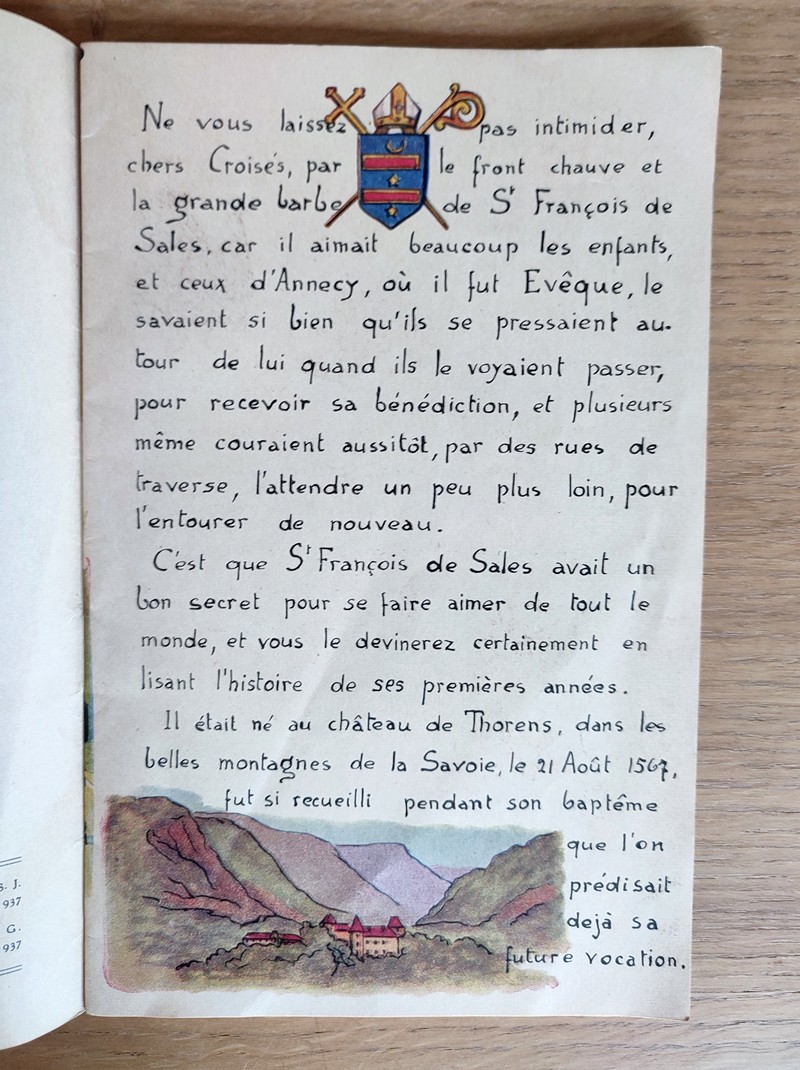 Ne vous laissez pas intimider,
chers Croisés, par le front chauve et
la grande barbe de St François de
Sales, car il aimait beaucoup les enfants,
et ceux d'Annecy, où il fut Evêque, le
savaient si bien qu'ils se pressaient au-
tour de lui quand ils le voyaient passer,
pour recevoir sa bénédiction, et plusieurs
même couraient aussitôt, par des rues de
traverse, l'attendre un peu plus loin, pour
l'entourer de nouveau.
C'est que St François de Sales avait un
bon secret pour se faire aimer de tout le
monde, et vous le devinerez certainement en
lisant l'histoire de ses premières années.
Il était né au château de Thorens, dans les
belles montagnes de la Savoie, le 21 Août 1567,
fut si recueilli pendant son baptême
que l'on
prédisait
dejà sa
future vocation.
S. J.
937
G.
937